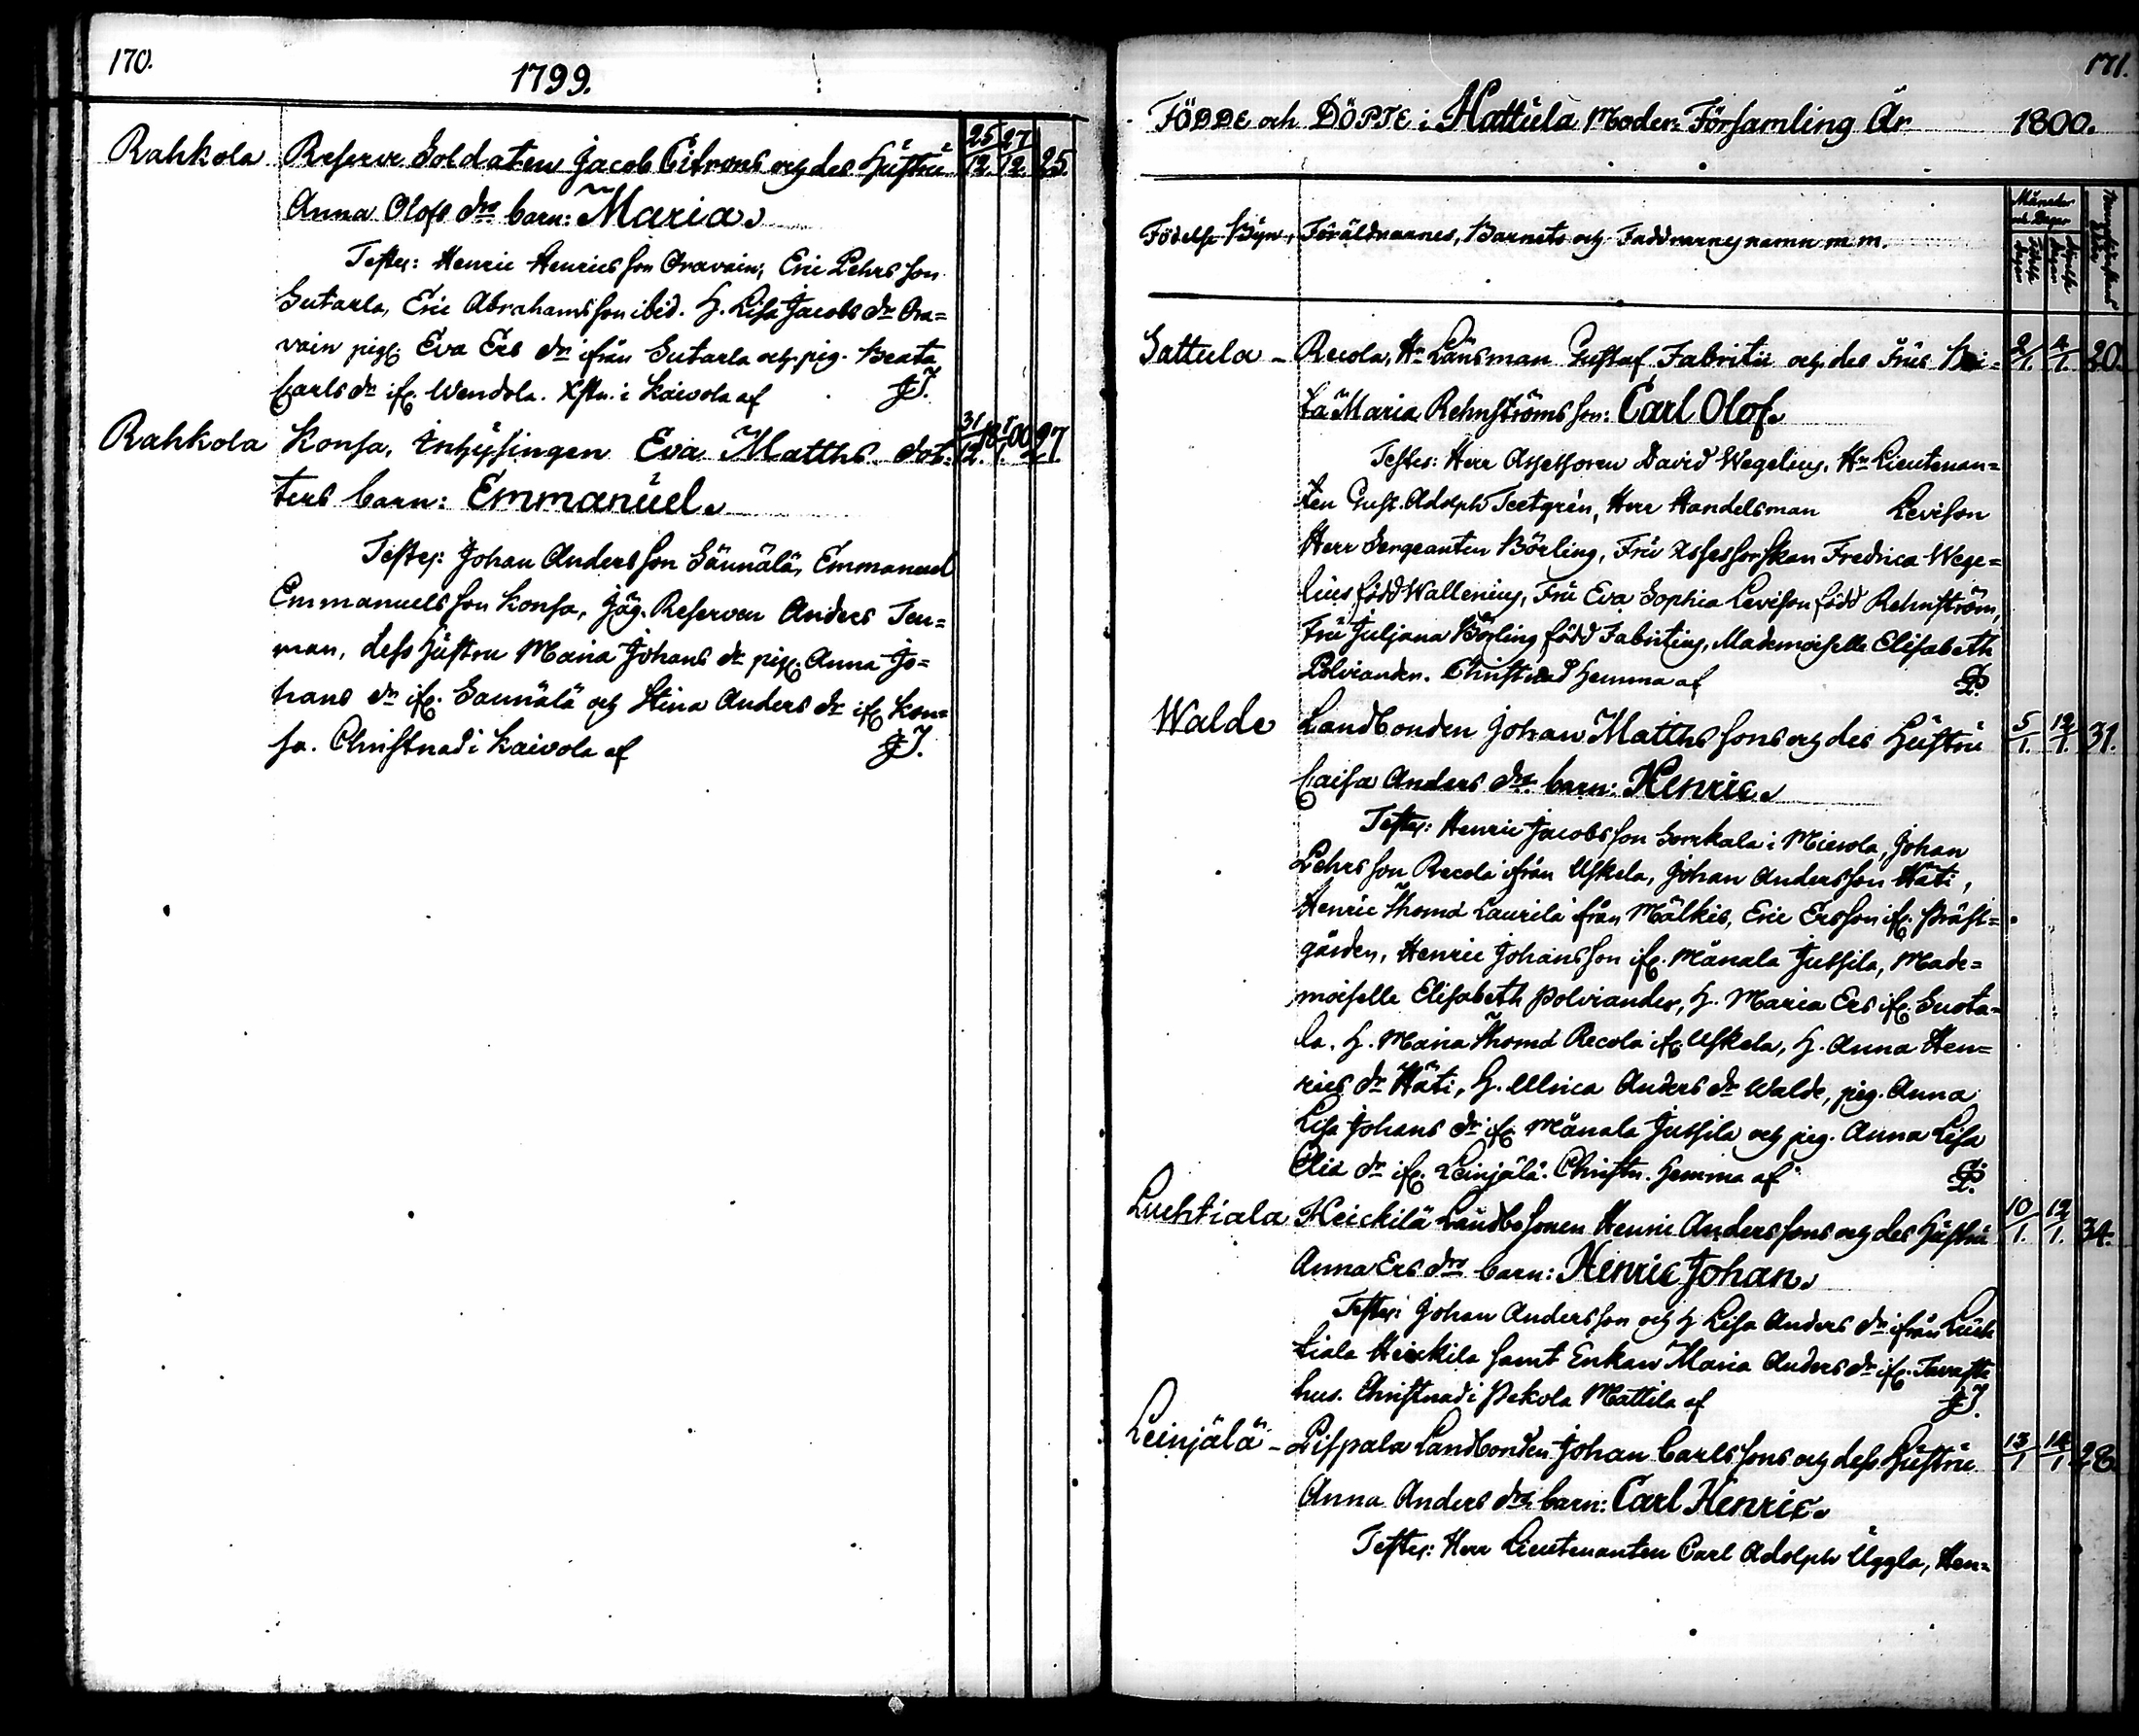 170.
1799.
Rahkola Reserve Soldaten Jacob Citrons och des Hustru 25/12. 27/12. 25.
Anna Olofs drs barn: Maria.
Testes: Henric Henricsson Oravain, Eric Pehrsson
Sutarla, Eric Abrahamsson ibid. H. Lisa Jacobs dr Ora=
vain pig. Eva Ers dr ifrån Sutarla och pig. Beata
Carls dr ifr. Wendola. Xstn. i Kaivola af JJ.
Rahkola Konsa, Inhysingen Eva Matths. dot= 31/12. 27.
ters barn: Emmanuel.
Testes: Johan Andersson Sännälä, Emmanuel
Emmanuelsson Konsa, Jäg. Reserven Anders Ten=
man, dess Hustru Maria Johans dr pig. Anna Jo=
hans dr ifr. Sännälä och Stina Anders dr ifr. Kon=
sa. Christnad i Kaivola af JJ.
171.
FÖDDE och DÖPTE i Hattula Moder-Församling År 1800.
Månader och Dagar
Födelse Byn, Föräldrarnes, Barnets och Faddrarnes namn m.m.
Sattula - Recola, Hr Länsman Gustaf Fabritii och des Frus Bri= 2/1. 4/1. 20.
ta Maria Rehnströms son: Carl Olof.
Testes: Herr Assessoren David Wegelius, Hr Lieutenan=
ten Gust. Adolph Teetgrén, Herr Handelsman Levison
Herr Sergeanten Börling, Fru Assessorskan Fredrica Wege=
lius född Wallenius, Fru Eva Sophia Levison född Rehnström,
Fru Juljana Börling född Fabritius, Mademoiselle Elisabeth
Polviander. Christnad hemma af
Walde Landbonden Johan Matthssons och des Hustru 5/1. 12/1. 31.
Caisa Anders drs barn: Henric.
Testes: Henric Jacobsson Sorrkala i Mierola, Johan
Pehrsson Recola ifrån Uskela, Johan Andersson Häti,
Henric Thomæ Laurila från Mälkis, Eric Ersson ifr. Präst=
gården, Henric Johansson ifr. Mänala Jussila, Made=
moiselle Elisabeth Polviander, H. Maria Ers ifr. Suota=
la. H. Maria Thomæ Recola ifr. Uskela, H. Anna Hen=
rics dr Häti, H. Ulrica Anders dr Walde, pig. Anna
Lisa Johans dr ifr. Mänala Jussila och pig. Anna Lisa
Elis dr ifr. Leinjälä. Christn. hemma af
Luehtiala Heickilä Landbosonen Henric Anderssons och des Hustru 10/1. 12/1. 34.
Anna Ers drs barn: Henric Johan.
Testes: Johan Andersson och H Lisa Anders dr ifrån Lueh
tiala Heickila samt Enkan Maria Anders dr ifr. Tavaste
hus. Christnad i Pekola Mattila af JJ.
Leinjälä - Pispala Landbonden Johan Carlssons och dess Hustru 13/1 14/1 28.
Anna Anders drs barn: Carl Henric.
Testes: Herr Lieutenanten Carl Adolph Uggla, Hen=